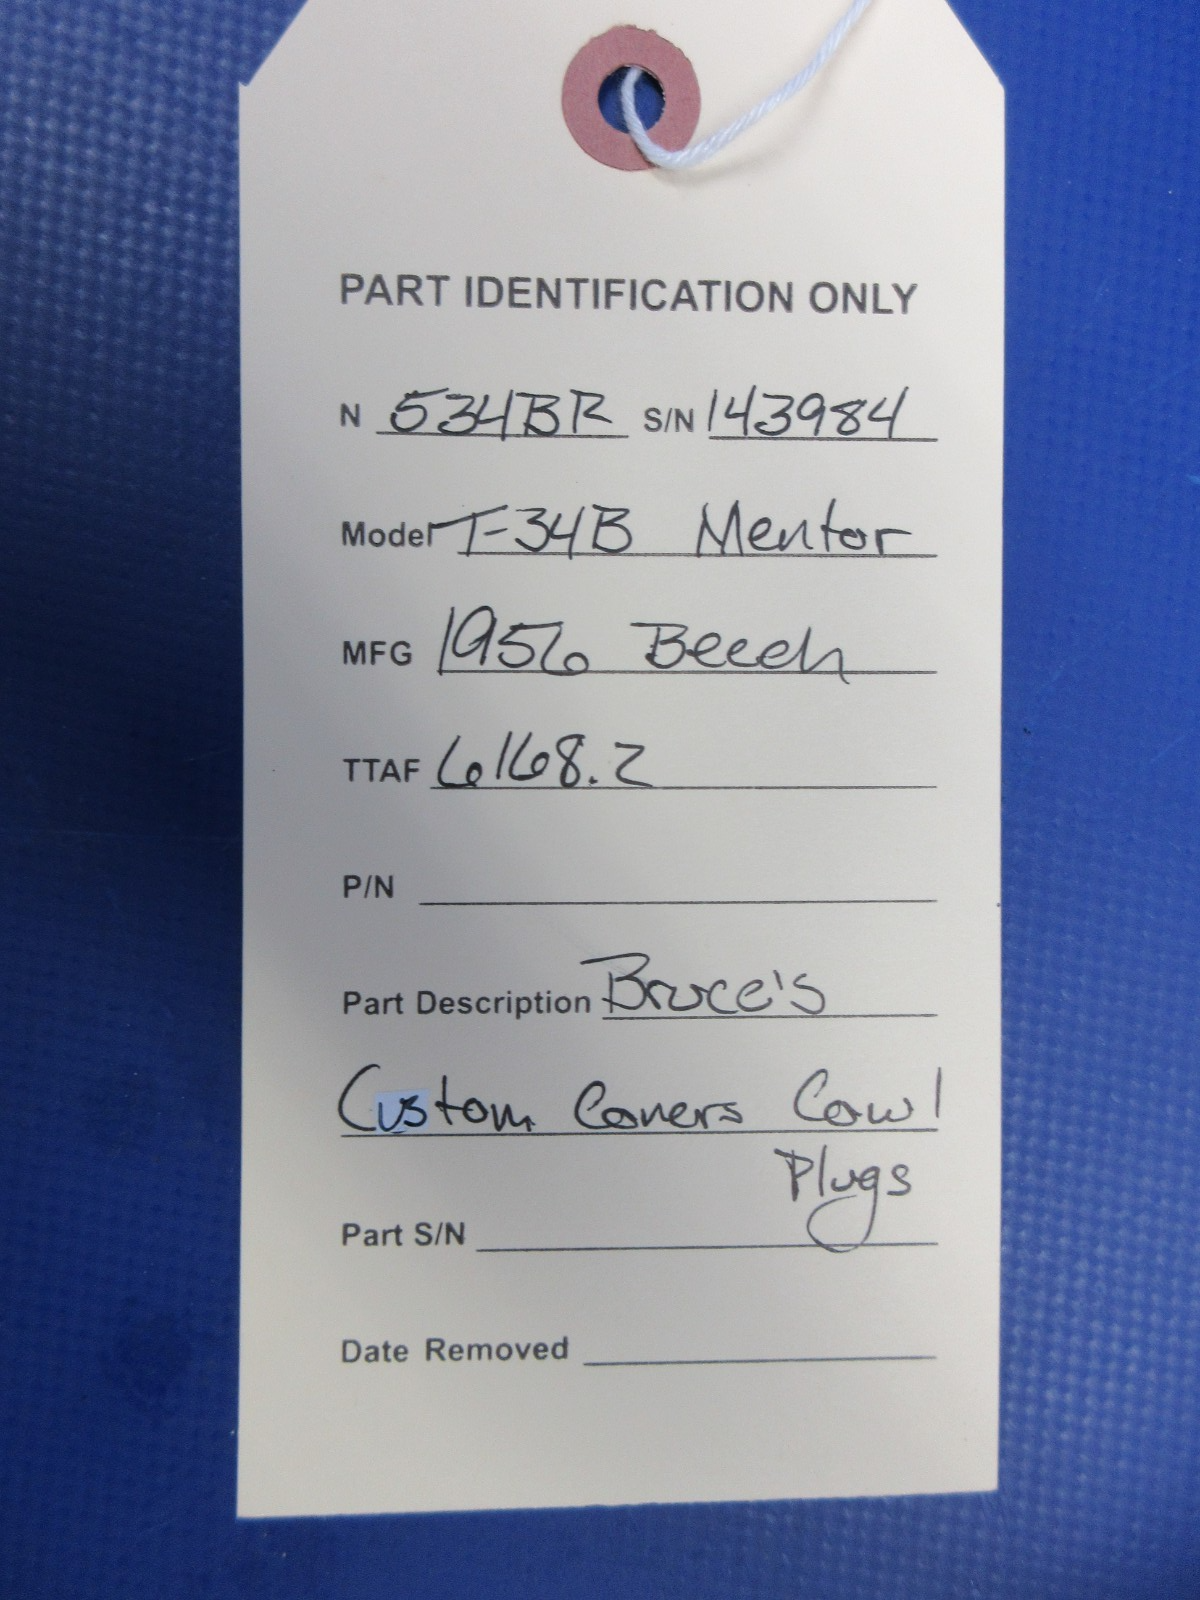 PART IDENTIFICATION ONLY
N 534BR S/N 143984
Model T-34B Mentor
MFG 1956 Beech
TTAF 6168.2
P/N
Part Description Bruce's
Custom Covers Cowl
Plugs
Part S/N
Date Removed